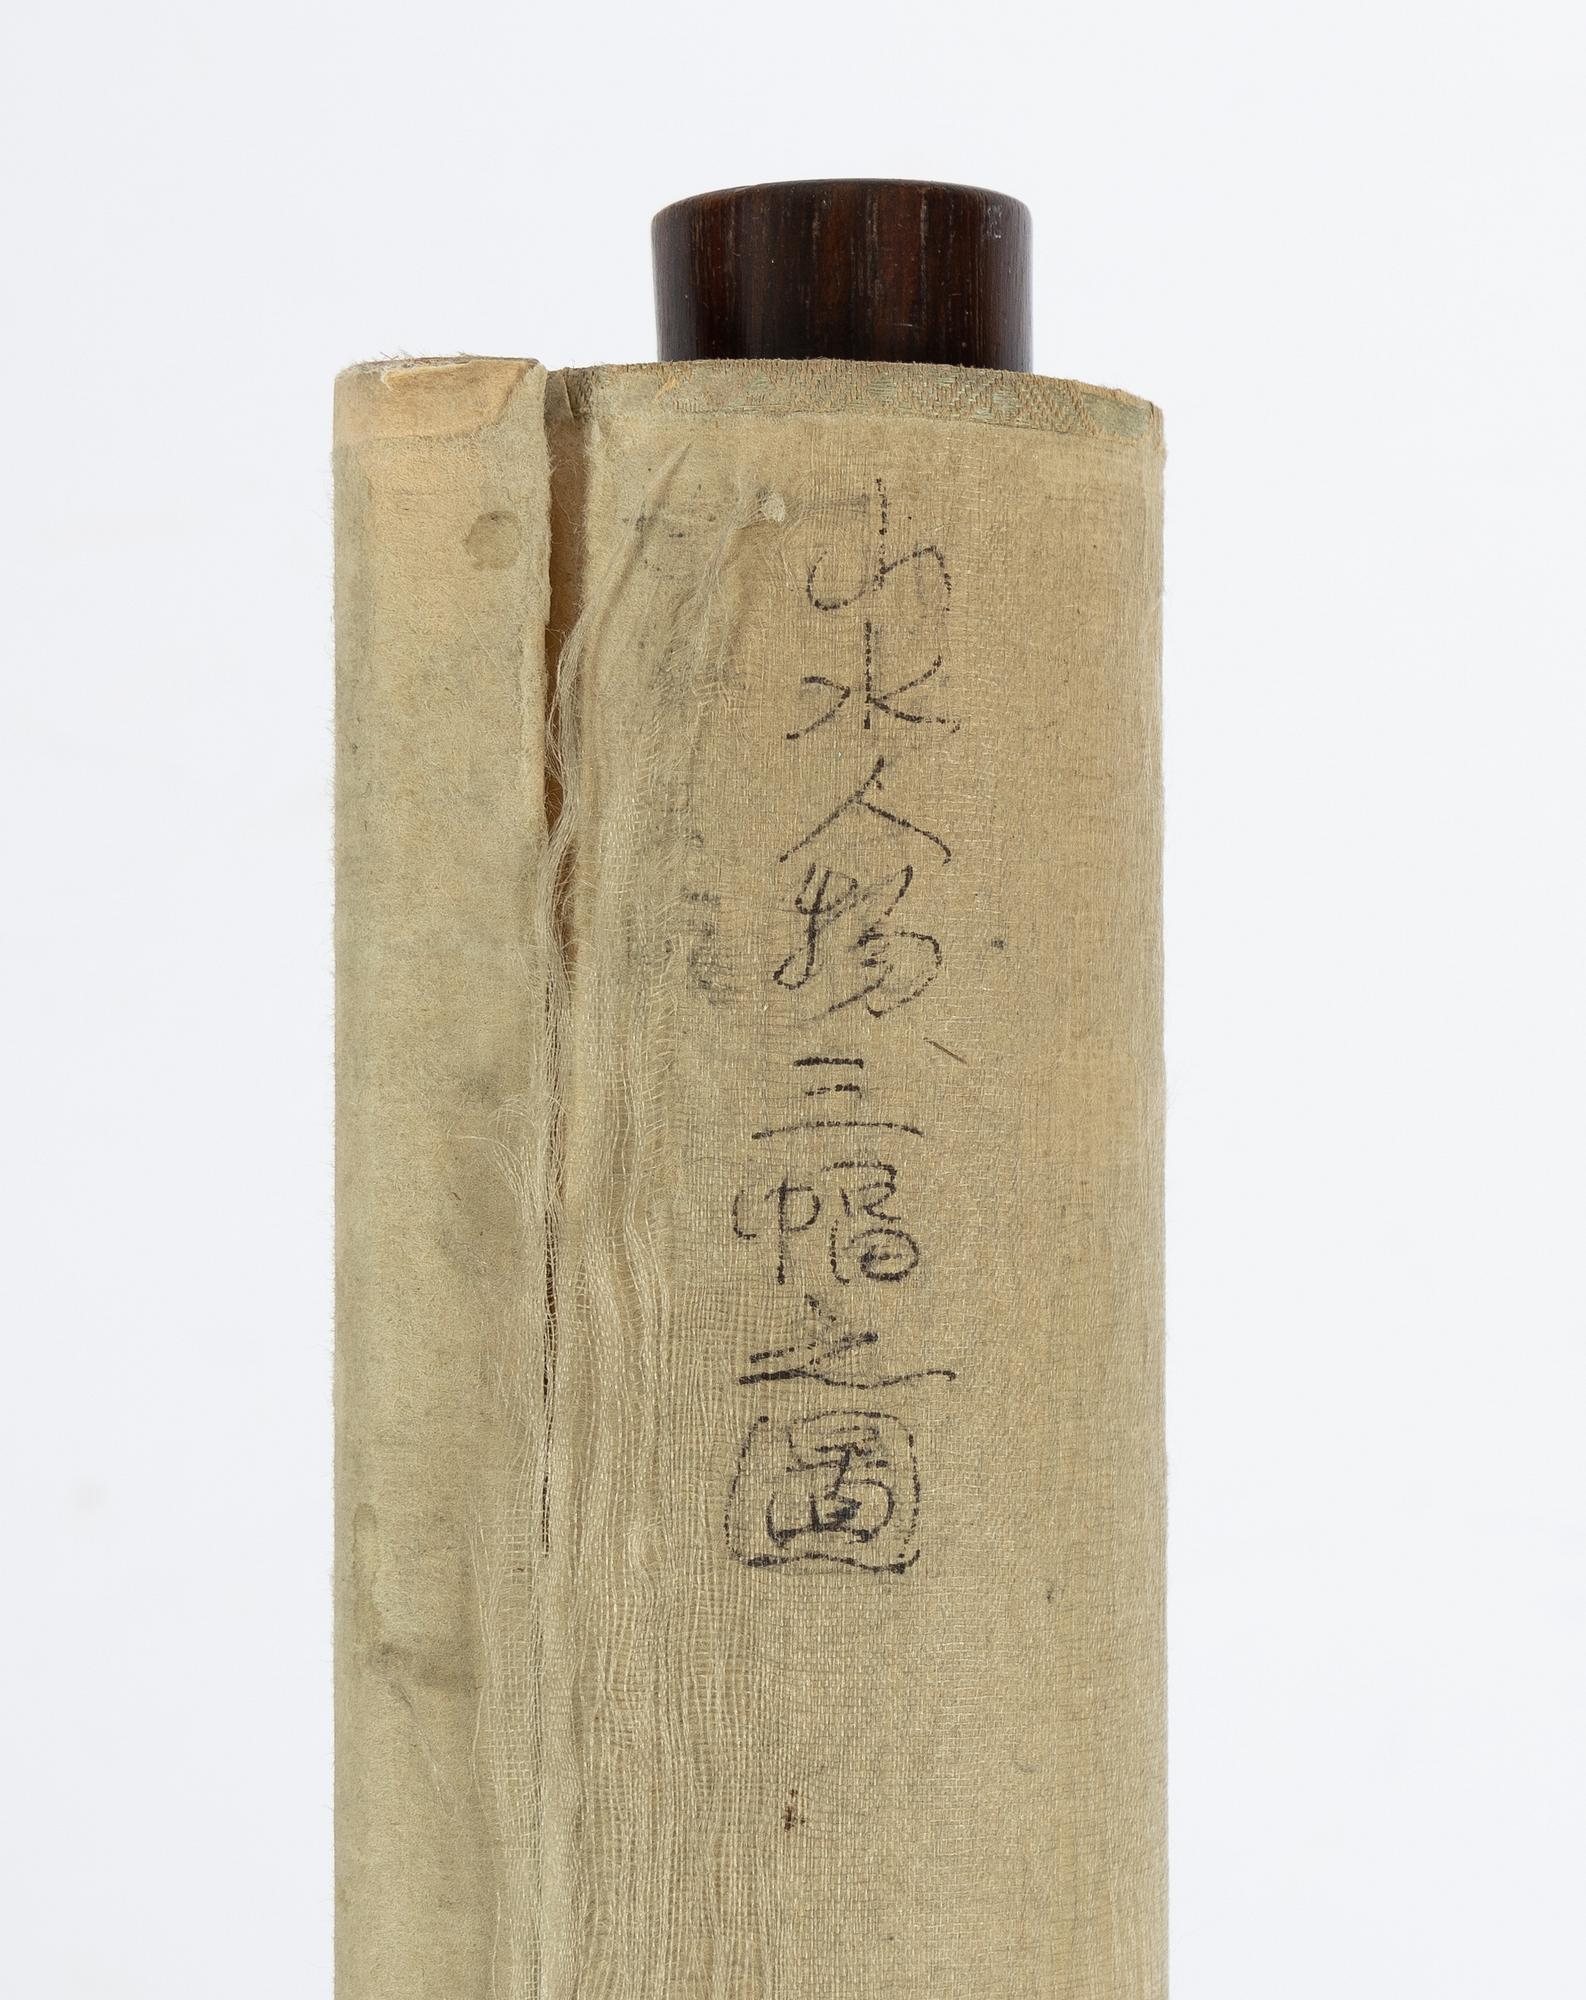 山水人物三幅之圖